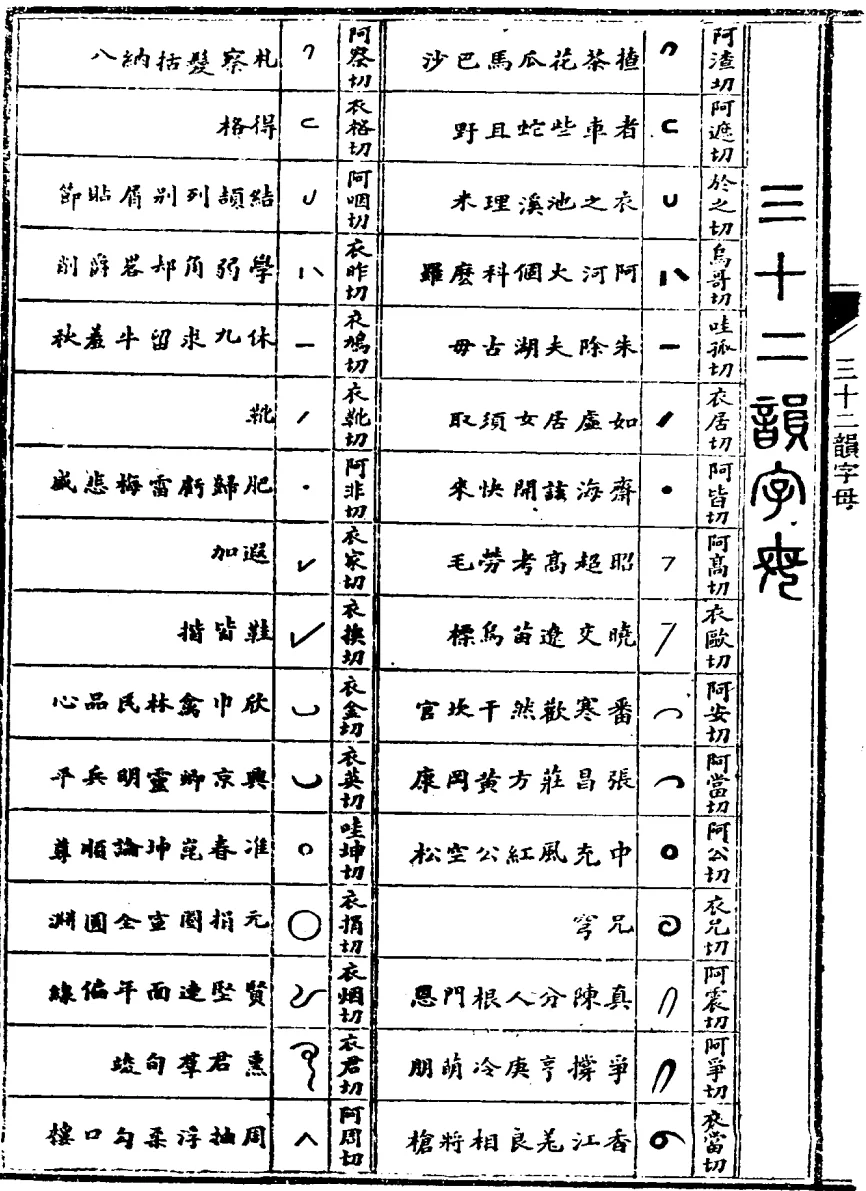 三十二韻字母
三十二韻字母
阿渣切 楂茶花瓜馬巴沙
阿遮切 者車些蛇且野
於之切 衣之池溪理米
烏哥切 阿河火個科麽羅
哇孤切 朱除夫湖古毋
衣居切 如虛居女須取
阿皆切 齋海該開快來
阿高切 昭超高考勞毛
衣歐切 曉交遼苗鳥標
阿安切 番寒歡然干坎官
阿當切 張昌莊方黃岡康
阿公切 中充風紅公空松
衣兄切 兄穹
阿震切 真陳分人根門恩
阿爭切 爭撐亨庚冷萌朋
衣當切 香江羌良相將槍
阿察切 札察髮括納八
衣格切 得格
阿咽切 結頡列别屑貼節
衣昨切 學弱角却若爵削
衣鳩切 休九求留牛羞秋
衣靴切 靴
阿非切 肥歸虧雷梅悲威
衣家切 遐加
衣 切 鞋皆揩
衣金切 欣巾禽林民品心
衣英切 興京卿靈明兵平
哇坤切 准春崑坤論順尊
衣捐切 元捐圈宣全圓淵
衣烟切 賢堅連面平偏線
衣君切 熏君羣旬竣
阿周切 周抽浮柔勾口樓